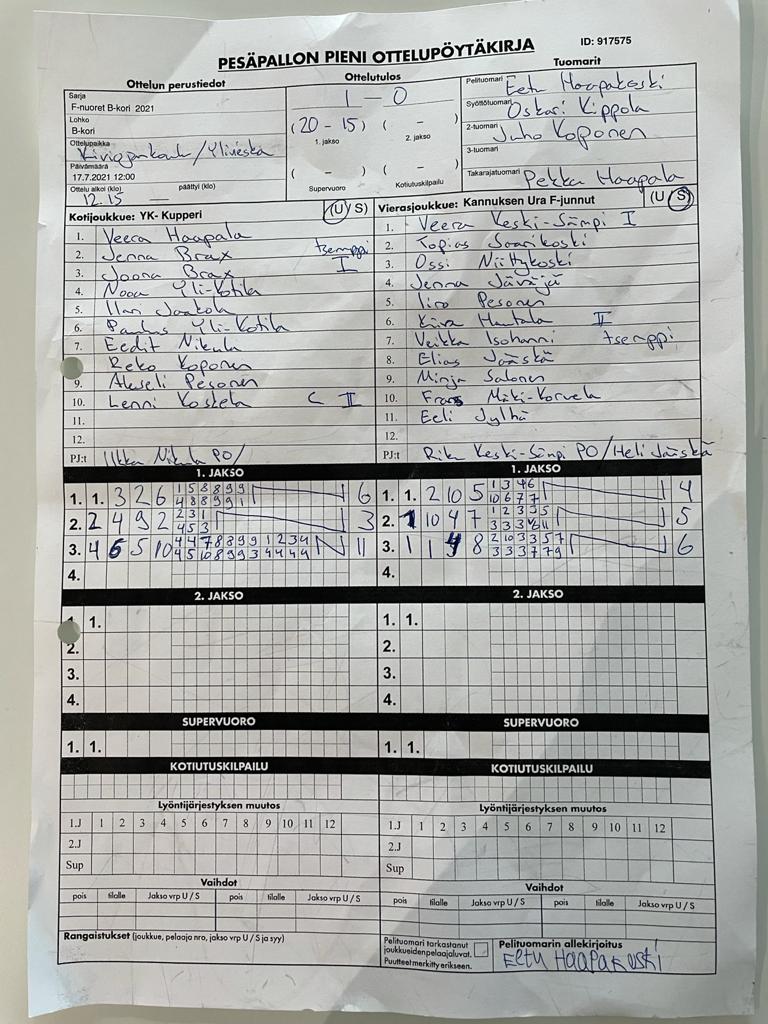 PESÄPALLON PIENI OTTELUPÖYTÄKIRJA
ID: 917575
Ottelun perustiedot
Sarja
F-nuoret B-kori 2021
Lohko
B-kori
Ottelupaikka
/Ylivieska
Päivämäärä
17.7.2021 12:00
Ottelu alkoi (klo) päättyi (klo)
12.15 —
Ottelutulos
1 - 0
(20 - 15) ( - )
1. jakso 2. jakso
( - ) ( - )
Supervuoro Kotiutuskilpailu
Tuomarit
Pelituomari Eetu Haapakoski
Syöttötuomari Oskari Kippola
2-tuomari Juho Koponen
3-tuomari
Takarajatuomari Pekka Haapala
Kotijoukkue: YK- Kupperi (U/ S)
1. Veera Haapala
2. Jenna Brax tsemppi
3. Joona Brax I
4. Nooa Yli-Kotila
5. Ilari Jaakola
6. Paulus Yli-Kotila
7. Eedit Nikula
Reko Koponen
9. Akseli Pesonen
10. Lenni Koskela C II
11.
12.
PJ:t Ilkka Nikula PO/
Vierasjoukkue: Kannuksen Ura F-junnut (U /S)
1. Veera Keski-Sämpi I
2. Topias Saarikoski
3. Ossi Niittykoski
4. Jenna Jäväjä
5. Iiro Pesonen
6. Hautala II
7. Veikka Isohanni tsemppi
8. Elias Jääskä
9. Minja Salonen
10. Frans Mäki-Korvela
11. Eeli Jylhä
12.
PJ:t Riku Keski-Sämpi PO/Heli Jääskä
1. JAKSO
1. 1. 3 2 6 1 5 8 8 9 9 6
4 8 8 9 9 1
2. 2 4 9 2 2 3 1 3
4 5 3
3. 4 6 5 10 4 4 7 8 8 9 9 1 2 3 4 11
4 5 10 8 9 9 3 4 4 4 4
4.
1. JAKSO
1. 1. 2 10 5 1 3 4 6 4
10 6 7 7
2. 1 10 4 7 1 2 3 3 5 5
3 3 3 6 11
3. 1 1 4 8 2 10 3 3 5 7 6
3 3 3 7 7 9
4.
2. JAKSO
1. 1.
2.
3.
4.
2. JAKSO
1. 1.
2.
3.
4.
SUPERVUORO
1. 1.
SUPERVUORO
1. 1.
KOTIUTUSKILPAILU
KOTIUTUSKILPAILU
Lyöntijärjestyksen muutos
1.J 1 2 3 4 5 6 7 8 9 10 11 12
2.J
Sup
Lyöntijärjestyksen muutos
1.J 1 2 3 4 5 6 7 8 9 10 11 12
2.J
Sup
Vaihdot
pois tilalle Jakso vrp U / S pois tilalle Jakso vrp U / S
Vaihdot
pois tilalle Jakso vrp U / S pois tilalle Jakso vrp U / S
Rangaistukset (joukkue, pelaaja nro, jakso vrp U / S ja syy)
Pelituomari tarkastanut
joukkueidenpelaajaluvat.
Puutteet merkitty erikseen.
Pelituomarin allekirjoitus
EETU HAAPAKOSKI